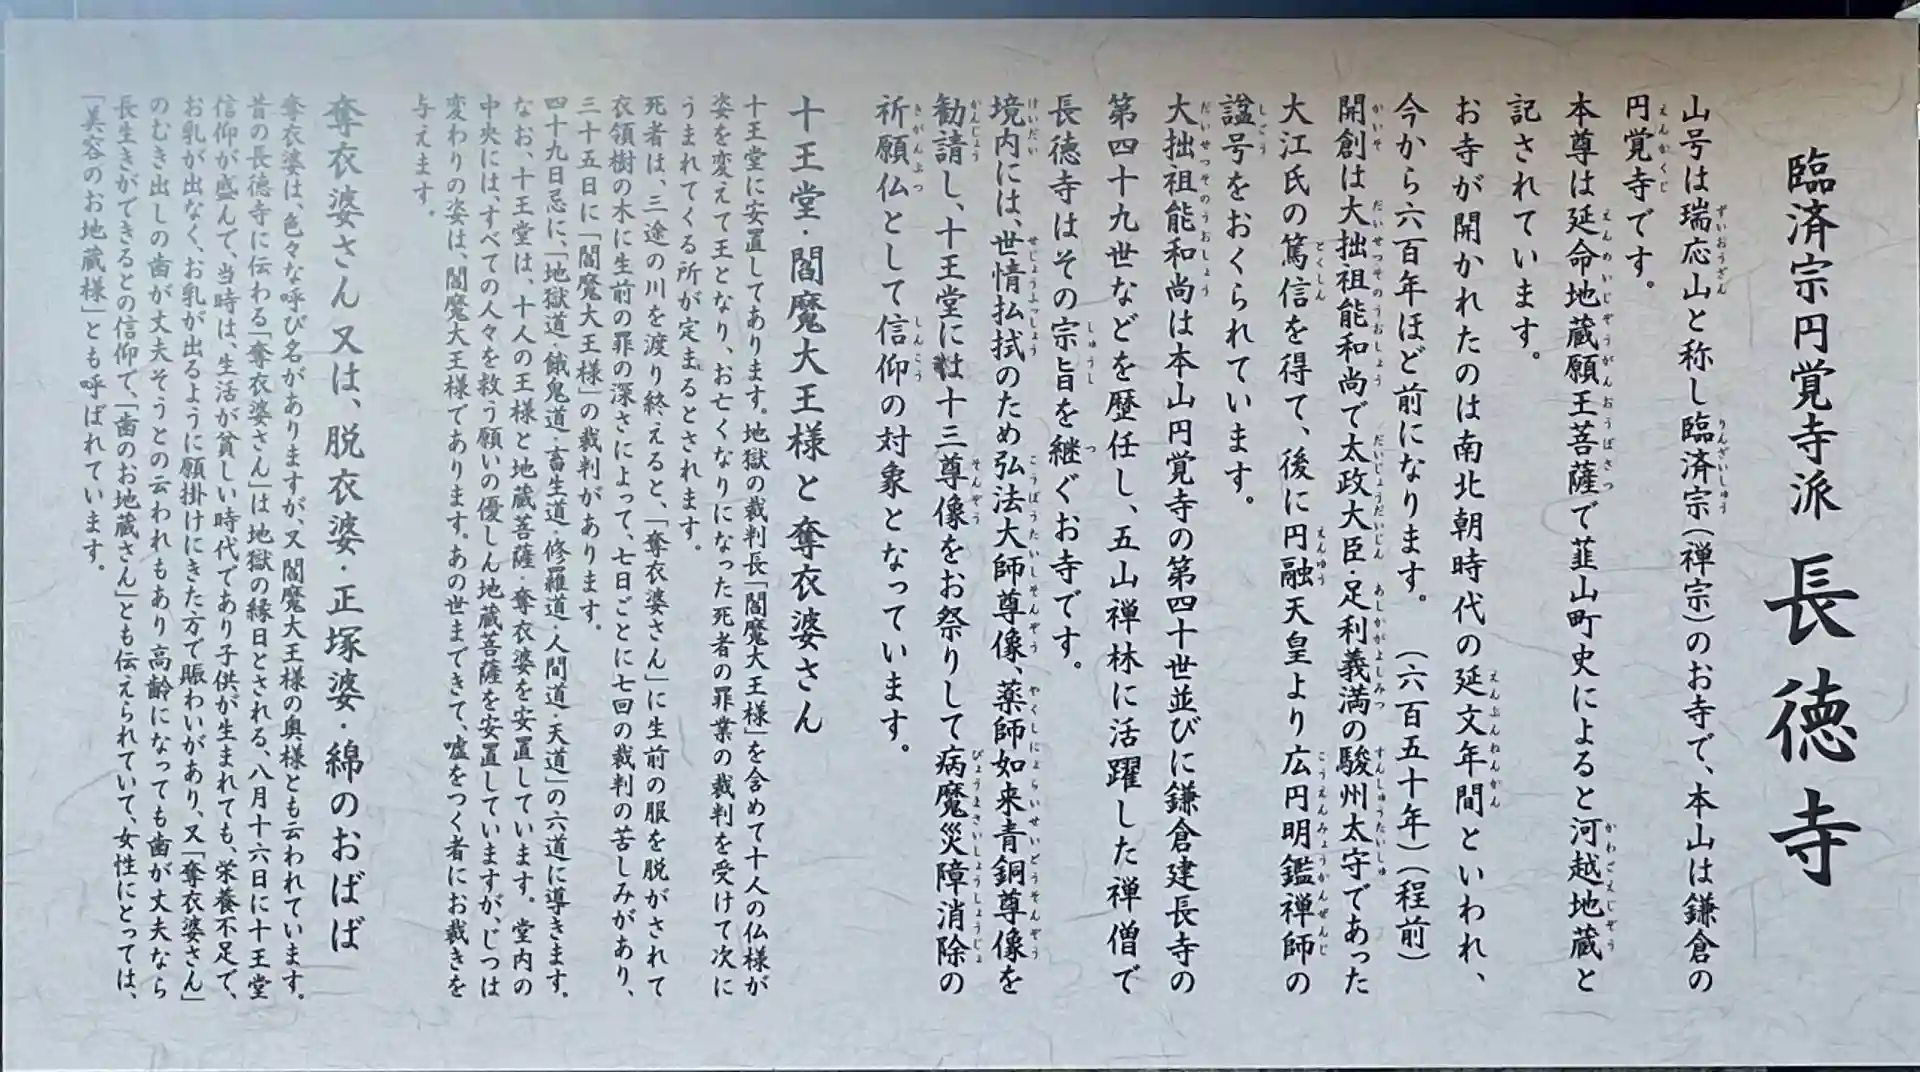 臨済宗円覚寺派 長徳寺
山号は瑞応山と称し臨済宗（禅宗）のお寺で、本山は鎌倉の
円覚寺です。
本尊は延命地蔵願王菩薩で韮山町史によると河越地蔵と
記されています。
お寺が開かれたのは南北朝時代の延文年間といわれ、
今から六百年ほど前になります。（六百五十年）（程前）
開創は大拙祖能和尚で太政大臣・足利義満の駿州太守であった
大江氏の篤信を得て、後に円融天皇より広円明鑑禅師の
諡号をおくられています。
大拙祖能和尚は本山円覚寺の第四十世並びに鎌倉建長寺の
第四十九世などを歴任し、五山禅林に活躍した禅僧で
長徳寺はその宗旨を継ぐお寺です。
境内には、世情払拭のため弘法大師尊像、薬師如来青銅尊像を
勧請し、十王堂には十三尊像をお祭りして病魔災障消除の
祈願仏として信仰の対象となっています。
十王堂・閻魔大王様と奪衣婆さん
十王堂に安置してあります。地獄の裁判長「閻魔大王様」を含めて十人の仏様が
姿を変えて王となり、お亡くなりになった死者の罪業の裁判を受けて次に
うまれてくる所が定まるとされます。
死者は、三途の川を渡り終えると、「奪衣婆さん」に生前の服を脱がされて
衣領樹の木に生前の罪の深さによって、七日ごとに七回の裁判の苦しみがあり、
三十五日に「閻魔大王様」の裁判があります。
四十九日忌に、「地獄道・餓鬼道・畜生道・修羅道・人間道・天道」の六道に導きます。
なお、十王堂は、十人の王様と地蔵菩薩・奪衣婆を安置しています。堂内の
中央には、すべての人々を救う願いの優しん地蔵菩薩を安置していますが、じつは
変わりの姿は、閻魔大王様であります。あの世まできて、嘘をつく者にお裁きを
与えます。
奪衣婆さん又は、脱衣婆・正塚婆・綿のおばば
奪衣婆は、色々な呼び名がありますが、又閻魔大王様の奥様とも云われています。
昔の長徳寺に伝わる「奪衣婆さん」は地獄の縁日とされる、八月十六日に十王堂
信仰が盛んで、当時は、生活が貧しい時代であり子供が生まれても、栄養不足で、
お乳が出なく、お乳が出るように願掛けにきた方で賑わいがあり、又「奪衣婆さん」
のむき出しの歯が丈夫そうとの云われもあり高齢になっても歯が丈夫なら
長生きができるとの信仰で、「歯のお地蔵さん」とも伝えられていて、女性にとっては、
「美容のお地蔵様」とも呼ばれています。